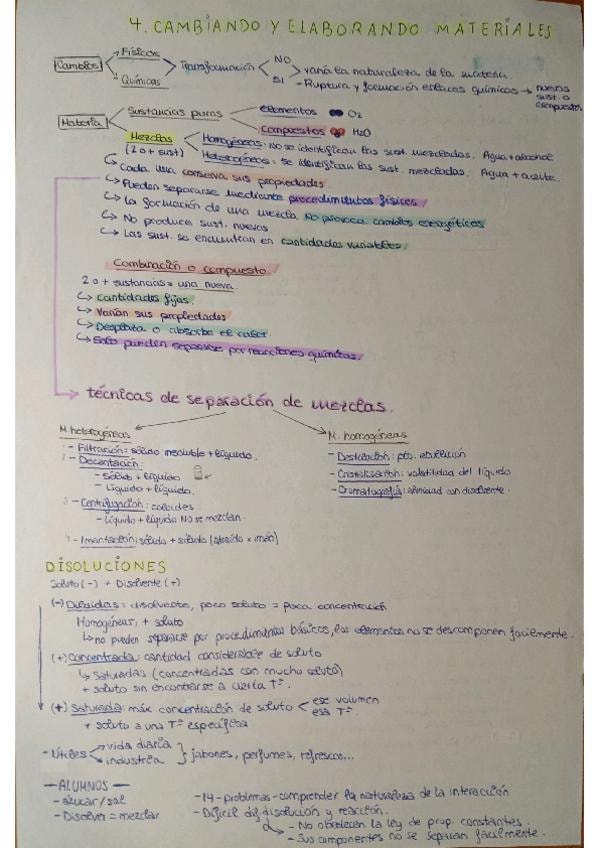 4. CAMBIANDO Y ELABORANDO MATERIALES
Cambios
Físicos
Químicas
Transformación
NO
SI
varía la naturaleza de la materia.
- Ruptura y formación enlaces químicos → nuevas sust. o compuestos
Materia
Sustancias puras
elementos O₂
compuestos H₂O
Mezclas
(2 o + sust)
Homogéneas: no se identifican las sust. mezcladas. Agua + alcohol
Heterogéneas: se identifican las sust. mezcladas. Agua + aceite.
↳ Cada una conserva sus propiedades
↳ Pueden separarse mediante procedimientos físicos
↳ La formación de una mezcla no provoca cambios energéticos
↳ No produce sust. nuevas
↳ Las sust. se encuentran en cantidades variables
Combinación o compuesto.
2 o + sustancias = una nueva.
↳ cantidades fijas.
↳ Varían sus propiedades
↳ Desprende o absorbe el calor
↳ Solo pueden separarse por reacciones químicas.
→ técnicas de separación de mezclas.
M. heterogéneas
1- Filtración: sólido insoluble + líquido.
2- Decantación:
- Sólido + líquido
- Líquido + líquido.
3- Centrifugación: coloides.
- Líquido + líquido NO se mezclan.
4- Imantación: sólido + sólido (atraído x imán)
M. homogéneas
- Destilación: pto. ebullición
- Cristalización: volatilidad del líquido
- Cromatografía: afinidad con disolvente.
DISOLUCIONES
Soluto (-) + Disolvente (+)
(-) Diluidas: disolvente, poco soluto = poca concentración
Homogéneas, + soluto
↳ no pueden separarse por procedimientos básicos, los elementos no se descomponen fácilmente.
(+) Concentrada: cantidad considerable de soluto
↳ Saturadas (concentradas con mucho soluto)
+ soluto sin encontrarse a cierta Tª.
(+) Saturada: máx concentración de soluto
ese volumen
esa Tª
+ soluto a una Tª específica
- Útiles
vida diaria
industria
jabones, perfumes, refrescos...
— ALUMNOS —
- azúcar / sal
- Disolver = mezclar
- 14 - problemas - comprender la naturaleza de la interacción
- Difícil dif. disolución y reacción.
↳ - No obedecen la ley de prop. constantes.
- Sus componentes no se separan fácilmente.